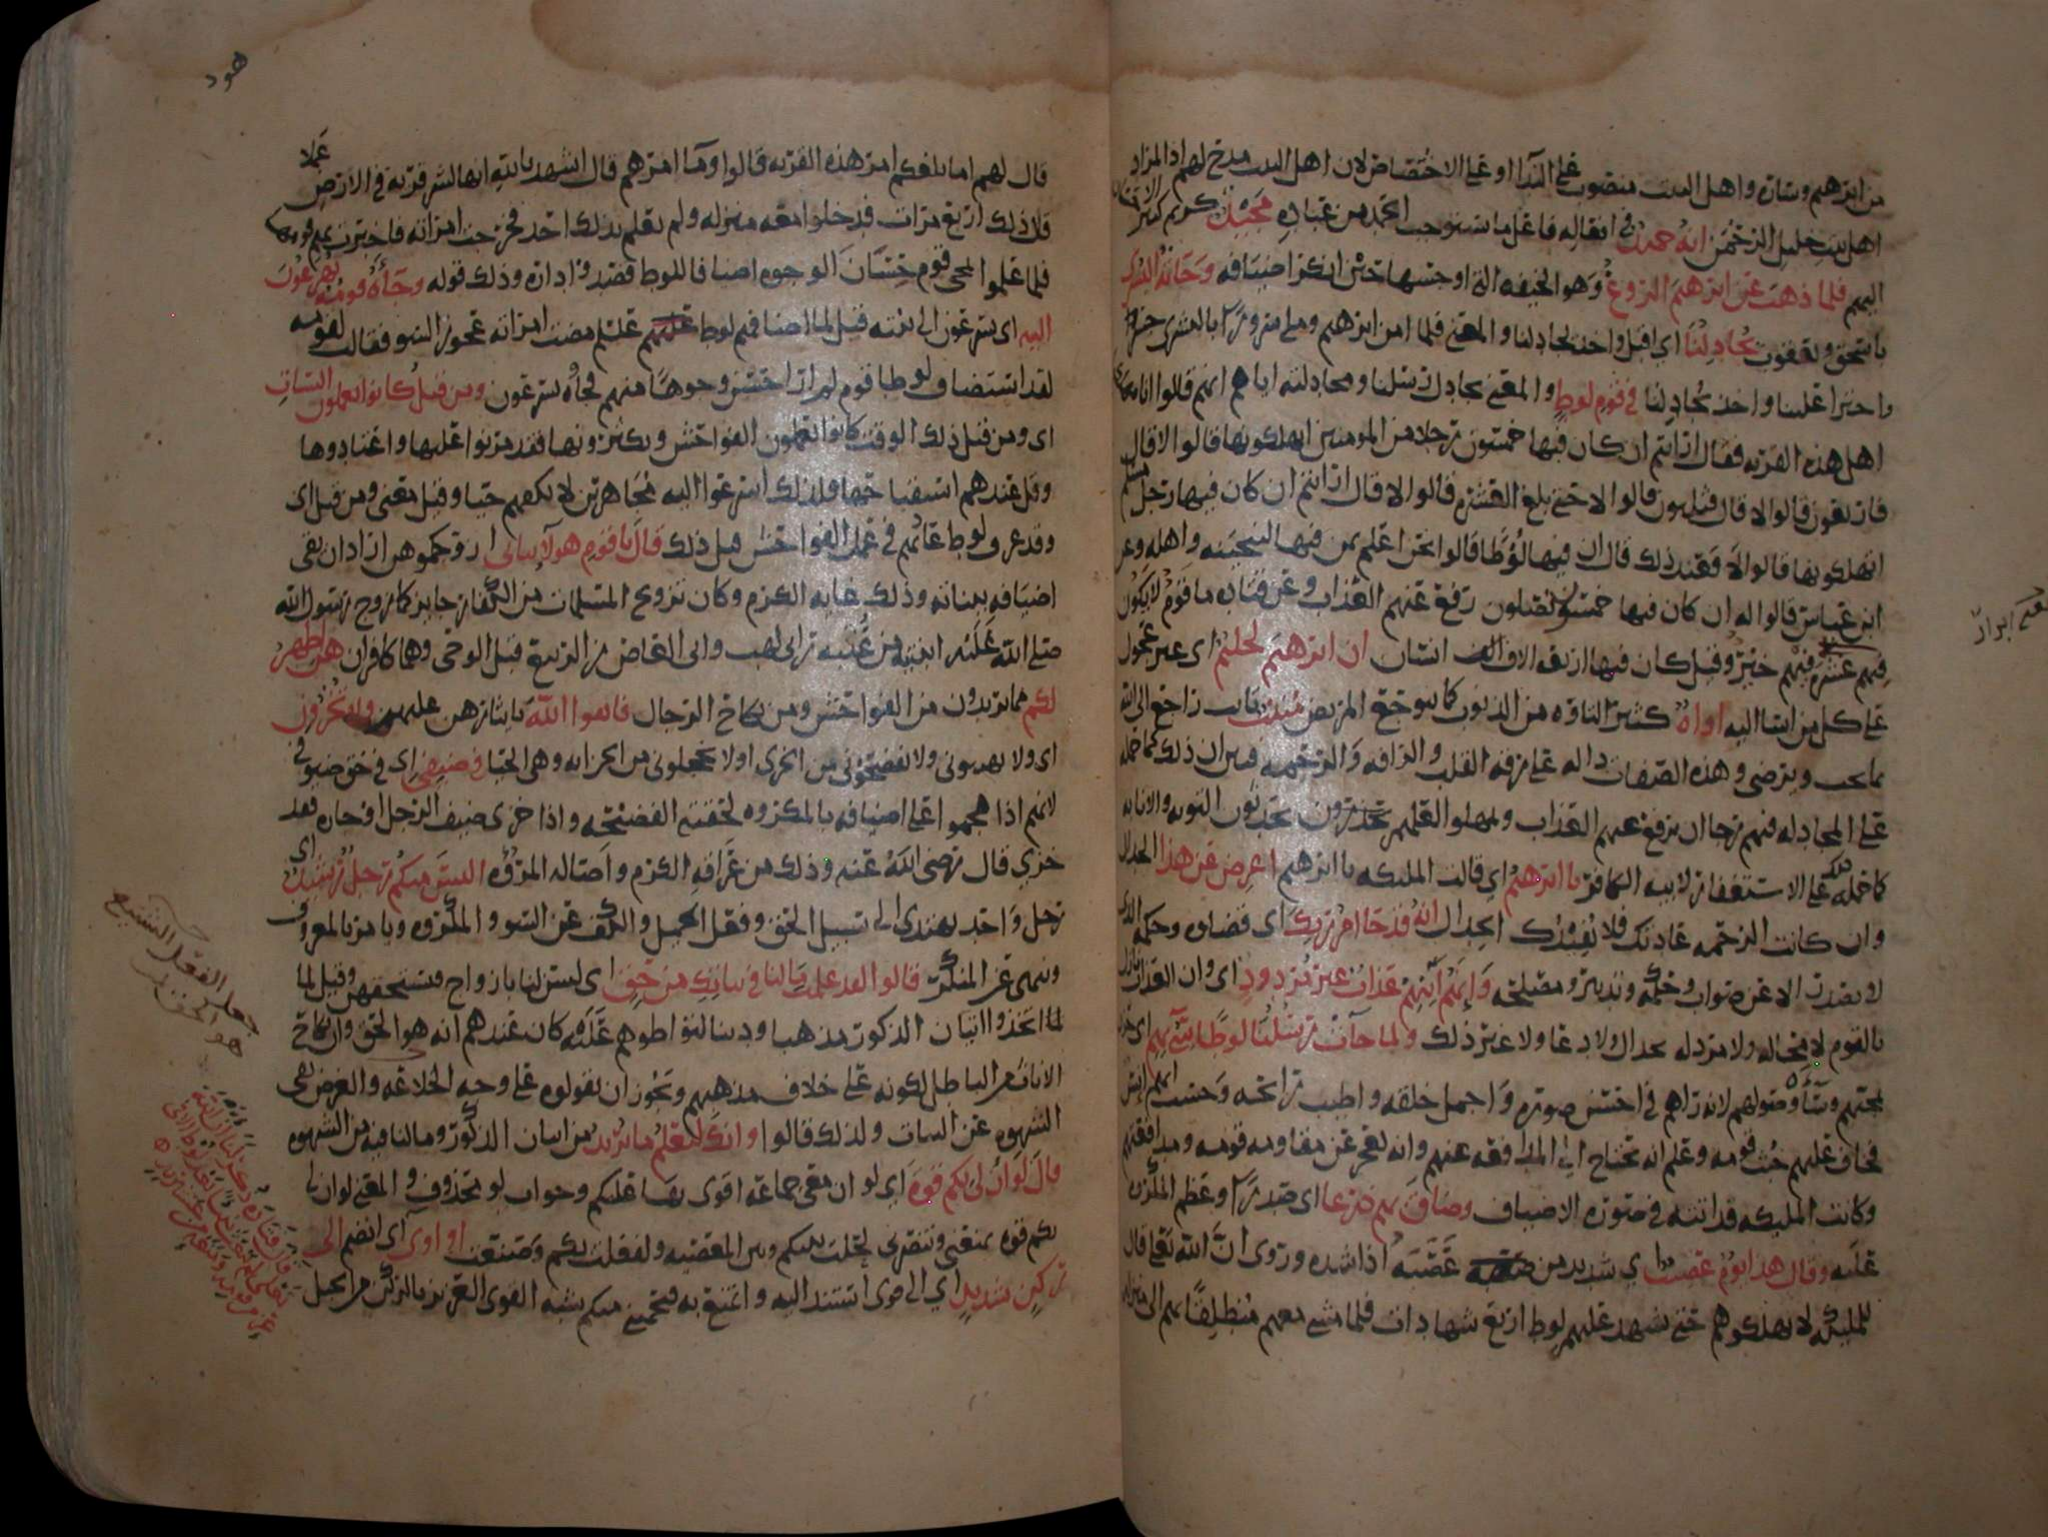 من ابرهيم وساره واهل البيت منصوب على الندا او على الاختصاص لان اهل البيت مدح لهم اذ المراد
اهل بيت خليل الرحمن انه حميد في افعاله فاعل ما يستوجب الحمد من عباده مجيد كريم كثير الاحسان
اليهم فلما ذهب عن ابرهيم الروع وهو الخيفه التي اوجسها حين انكر اضيافه وجاته البشرى
باسحق ويعقوب يجادلنا اي اقبل واخذ يجادلنا والمعنى فلما امن ابرهيم وملي سرورا بالبشرى
واجترا علينا واخذ يجادلنا في قوم لوط والمعنى يجادل رسلنا ومجادلته اياهم انهم قالوا انا مهلكوا
اهل هذه القريه فقال ارايتم ان كان فيها خمسون رجلا من المومنين اتهلكونها قالوا لا قال
فاربعون قالوا لا قال فثلثون قالوا لا حتى بلغ العشره قالوا لا قال ارايتم ان كان فيها رجل مسلم
اتهلكونها قالوا لا فعند ذلك قال ان فيها لوطا قالوا نحن اعلم بمن فيها لننجينه واهله وعن
ابن عباس قالوا له ان كان فيها خمسون يصلون رفع عنهم العذاب وعن قتاده ما قوم لا يكون
فيهم عشره فيهم خير وقيل كان فيها اربعه الاف الف انسان ان ابرهيم لحليم اى غير عجول
على كل من اسا اليه اواه كثير التاوه من الذنوب كما يتوجع المريض منيب تايب راجع الى الله
بما يحب ويرضى وهذه الصفات داله على رقه القلب والرافه والرحمه فبين ان ذلك مما حمله
على المجادله فيهم رجا ان يرفع عنهم العذاب ويمهلوا لعلهم يحدثون التوبه والانابه
كما حمله على الاستغفار لابيه الكافر يا ابرهيم اي قالت المليكه يا ابرهيم اعرض عن هذا الجدال
وان كانت الرحمه عادتك فلا يفيدك الجدال انه قد جا امر ربك اى قضاوه وحكمه الذي
لا يصدر الا عن صواب وحكمه وتدبير ومصلحه وانهم آتيهم عذاب غير مردود اى وان العذاب نازل
بالقوم لا محاله ولا مرد له بجدال ولا دعا ولا غير ذلك ولما جآت رسلنا لوطا سيء بهم
بمجيهم وسآه وصولهم لانه راهم في احسن صوره واجمل خلقه واطيب رائحه وحسب انهم انس
فخاف عليهم خبث قومه وعلم انه يحتاج الى المدافعه عنهم وانه يعجز عن مقاومه قومه ومدافعتهم
وكانت المليكه قد اتته في صوره الاضياف وضاق بهم ذرعا اى صدرا وعظم المكروه
عليه وقال هذا يوم عصيب اي شديد من عصبه اذا شده وروى ان الله تعالى قال
للمليكه لا تهلكوهم حتى يشهد عليهم لوط اربع شهادات فلما مشي معهم منطلقا بهم الى منزله
معنى ابرار
هود
قال لهم اما بلغكم امر هذه القريه قالوا وما امرهم قال اشهد بالله انها لشر قريه في الارض عملا
قال ذلك اربع مرات فدخلوا معه منزله ولم يعلم بذلك احد فخرجت امراته فاخبرت بهم قومها
فلما علموا بمجي قوم حسان الوجوه اضيافا للوط قصدوا داره وذلك قوله وجآه قومه يهرعون
اليه اى يسرعون الى بيته قيل لما اضافهم لوط عليه السلام مضت امراته عجوز السو فقالت لقومه
لقد استضاف لوطا قوم لم ار احسن وجوها منهم فجاه يسرعون ومن قبل كانوا يعملون السيات
اى ومن قبل ذلك الوقت كانوا يعملون الفواحش ويكثرونها فقد مرنوا عليها واعتادوها
وقل عندهم استقباحها ولذلك اسرعوا اليه مجاهرين لا يكفهم حيا وقيل معنى ومن قبل اى
وقد عرف لوط عادتهم في عمل الفواحش قبل ذلك قال يا قوم هولآ بناتي اراد ان يقى
اضيافه ببناته وذلك غايه الكرم وكان تزويج المسلمات من الكفار جايز كما زوج رسول الله
صلى الله عليه ابنتيه من عتبه بن ابى لهب وابى العاص بن الربيع قبل الوحى وهما كافران هن اطهر
لكم مما تريدون من الفواحش ومن نكاح الرجال فاتقوا الله بايثارهن عليهم ولا تخزون
اى ولا تهينونى ولا تفضحونى من الخزى او لا تخجلونى من الخزايه وهي الحيا في ضيفي اى في حق ضيوفي
لانهم اذا هجموا على اضيافه بالمكروه لحقته الفضيحه واذا خزى ضيف الرجل او جاره فقد
خزي قال رضى الله عنه وذلك من عراقه الكرم واصاله المروه اليس منكم رجل رشيد اي
رجل واحد يهتدى الى سبيل الحق وفعل الجميل والكف عن السو والمكروه ويامر بالمعروف
وينهى عن المنكر قالوا لقد علمت ما لنا في بناتك من حق اى لسن لنا بازواج فنستحقهن وقيل لما
اتخذوا اتيان الذكور مذهبا ودينا لتواطوهم عليه كان عندهم انه هو الحق وان نكاح
الاناث من الباطل لكونه على خلاف مذهبهم ويجوز ان يقولوه على وجه الخلاعه والغرض نفى
الشهوه عن البنات ولذلك قالوا وانك لتعلم ما نريد من اتيان الذكور وما لنا فيه من الشهوه
قال لو ان لى بكم قوه اي لو ان معى جماعه اقوى بها عليكم وجواب لو محذوف والمعنى لو ان لى
بكم قوه تمنعني وتنصرني لحلت بينكم وبين المعصيه ولفعلت بكم وصنعت او اوي اى انضم الى
ركن شديد اي الى قوى استند اليه وامتنع به فيحميني منكم يشبه القوى العزيز بالركن من الجبل
جعل الفعل الشنيع
هو الحق